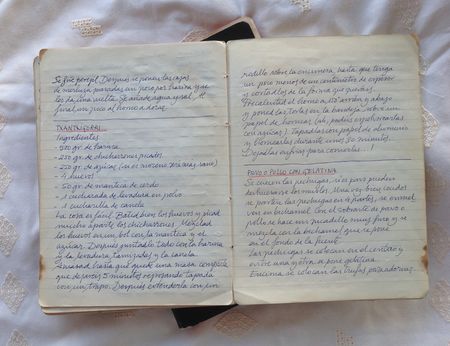 Se fríe perejil. Después se ponen las cazas
de merluza pasadas un poco por harina y que
les da una vuelta. Se añade agua y sal. Al
final un poco al horno a dorar.
TXANTXIGORRI
Ingredientes
- 500 gr. de harina
- 250 gr. de chicharrones picados
- 250 gr. de azúcar (si es moreno
- 4 huevos
- 50 gr. de manteca de cerdo
- 1 cucharada de levadura en polvo
- 1 cucharilla de canela
La cosa es fácil. Batid bien los huevos y picad
mucho aparte los chicharrones. Mezclad
los huevos en un bol con la manteca y el
azúcar. Después juntadlo todo con la harina
y la levadura, tamizadas y la canela.
Amasad hasta que quede una masa compacta
que dejaréis 5 minutos reposando tapada
con un trapo. Después extenderla con un
rodillo sobre la encimera, hasta que tenga
un poco menos de un centímetro de espesor
y cortadlos de la forma que queráis.
Precalentad el horno a 180 arriba y abajo
y poned las tortas en la bandeja sobre un
papel de hornear, (ah, podéis espolvorearlas
con azúcar). Tapadlas con papel de aluminio
y hornearlas durante unos 30 minutos.
Dejadlas enfriar para comerlas...!
PAVO O POLLO CON GELATINA
Se cuecen las pechugas, si es pavo pueden
deshuesarse los muslos. Una vez bien cocidos
se parten las pechugas en 4 partes, se envuel-
ven en bechamel. Con el sobrante de pavo o
pollo se hace un picadillo muy fino y se
mezcla con la bechamel que se pone
en el fondo de la fuente.
Las pechugas se colocan en el centro y
entre una y otra se pone gelatina.
Encima se colocan las trufas para adornar.